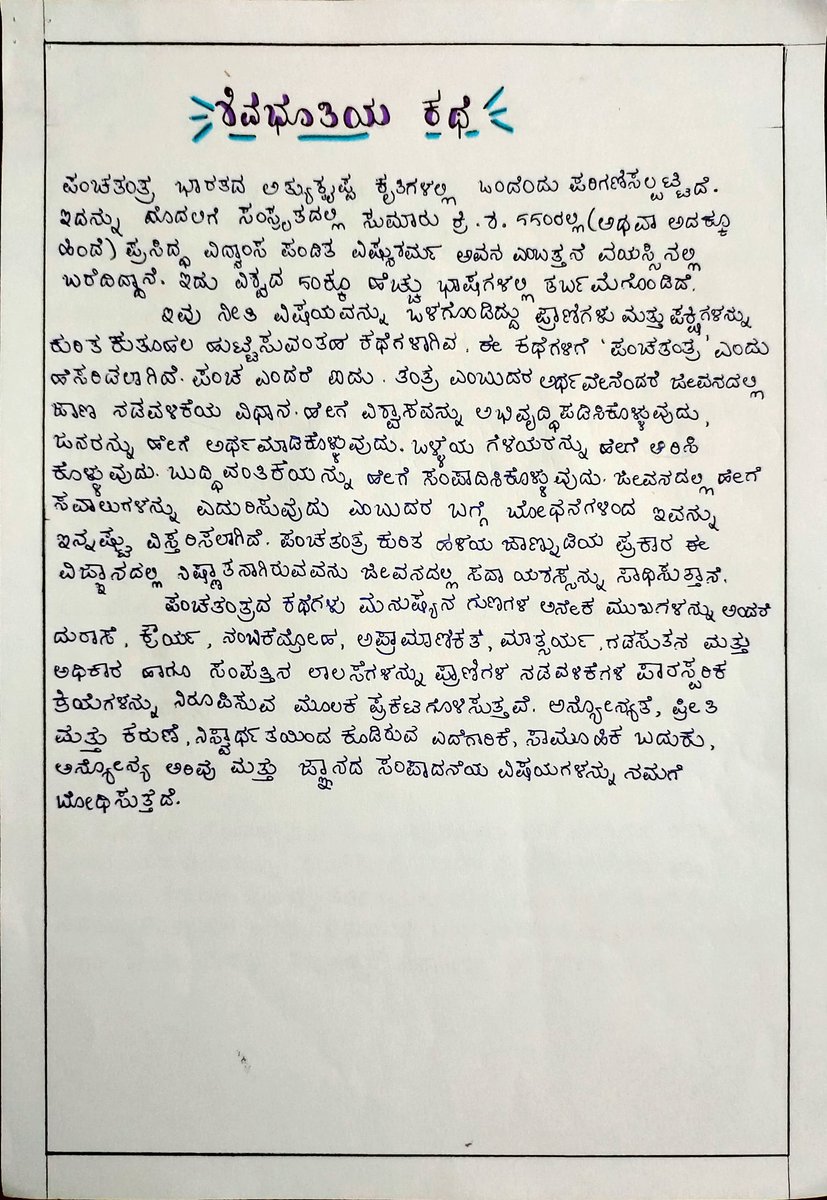 ಶಿವಭೂತಿಯ ಕಥೆ
ಪಂಚತಂತ್ರ ಭಾರತದ ಅತ್ಯುತ್ಕೃಷ್ಟ ಕೃತಿಗಳಲ್ಲಿ ಒಂದೆಂದು ಪರಿಗಣಿಸಲ್ಪಟ್ಟಿದೆ.
ಇದನ್ನು ಮೊದಲಿಗೆ ಸಂಸ್ಕೃತದಲ್ಲಿ ಸುಮಾರು ಕ್ರಿ.ಶ. ೯೯೦ರಲ್ಲಿ (ಅಥವಾ ಅದಕ್ಕೂ
ಹಿಂದೆ) ಪ್ರಸಿದ್ಧ ವಿದ್ವಾಂಸ ಪಂಡಿತ ವಿಷ್ಣುಶರ್ಮ ಅವನ ಎಂಬತ್ತನೆ ವಯಸ್ಸಿನಲ್ಲಿ
ಬರೆದಿದ್ದಾನೆ. ಇದು ವಿಶ್ವದ ೫೦ಕ್ಕೂ ಹೆಚ್ಚು ಭಾಷೆಗಳಲ್ಲಿ ತರ್ಜಮೆಗೊಂಡಿದೆ.
ಇವು ನೀತಿ ವಿಷಯವನ್ನು ಒಳಗೊಂಡಿದ್ದು ಪ್ರಾಣಿಗಳು ಮತ್ತು ಪಕ್ಷಿಗಳನ್ನು
ಕುರಿತ ಕುತೂಹಲ ಹುಟ್ಟಿಸುವಂತಹ ಕಥೆಗಳಾಗಿವೆ. ಈ ಕಥೆಗಳಿಗೆ 'ಪಂಚತಂತ್ರ' ಎಂದು
ಹೆಸರಿಡಲಾಗಿದೆ. ಪಂಚ ಎಂದರೆ ಐದು. ತಂತ್ರ ಎಂಬುದರ ಅರ್ಥವೇನೆಂದರೆ ಜೀವನದಲ್ಲಿ
ಜಾಣ ನಡವಳಿಕೆಯ ವಿಧಾನ. ಹೇಗೆ ವಿಶ್ವಾಸವನ್ನು ಅಭಿವೃದ್ಧಿಪಡಿಸಿಕೊಳ್ಳುವುದು,
ಜನರನ್ನು ಹೇಗೆ ಅರ್ಥಮಾಡಿಕೊಳ್ಳುವುದು. ಒಳ್ಳೆಯ ಗೆಳೆಯರನ್ನು ಹೇಗೆ ಆರಿಸಿ
ಕೊಳ್ಳುವುದು. ಬುದ್ಧಿವಂತಿಕೆಯನ್ನು ಹೇಗೆ ಸಂಪಾದಿಸಿಕೊಳ್ಳುವುದು. ಜೀವನದಲ್ಲಿ ಹೇಗೆ
ಸವಾಲುಗಳನ್ನು ಎದುರಿಸುವುದು ಎಂಬುದರ ಬಗ್ಗೆ ಬೋಧನೆಗಳಿಂದ ಇವನ್ನು
ಇನ್ನಷ್ಟು ವಿಸ್ತರಿಸಲಾಗಿದೆ. ಪಂಚತಂತ್ರ ಕುರಿತ ಹಳೆಯ ಜಾಣ್ನುಡಿಯ ಪ್ರಕಾರ ಈ
ವಿಜ್ಞಾನದಲ್ಲಿ ನಿಷ್ಣಾತನಾಗಿರುವವನು ಜೀವನದಲ್ಲಿ ಸದಾ ಯಶಸ್ಸನ್ನು ಸಾಧಿಸುತ್ತಾನೆ.
ಪಂಚತಂತ್ರದ ಕಥೆಗಳು ಮನುಷ್ಯನ ಗುಣಗಳ ಅನೇಕ ಮುಖಗಳನ್ನು ಅಂದರೆ
ದುರಾಸೆ, ಕ್ರೌರ್ಯ, ನಂಬಿಕೆದ್ರೋಹ, ಅಪ್ರಾಮಾಣಿಕತೆ, ಮಾತ್ಸರ್ಯ, ಗಡಸುತನ ಮತ್ತು
ಅಧಿಕಾರ ಹಾಗೂ ಸಂಪತ್ತಿನ ಲಾಲಸೆಗಳನ್ನು ಪ್ರಾಣಿಗಳ ನಡವಳಿಕೆಗಳ ಪಾರಸ್ಪರಿಕ
ಕ್ರಿಯೆಗಳನ್ನು ನಿರೂಪಿಸುವ ಮೂಲಕ ಪ್ರಕಟಗೊಳಿಸುತ್ತವೆ. ಅನ್ಯೋನ್ಯತೆ, ಪ್ರೀತಿ
ಮತ್ತು ಕರುಣೆ, ನಿಸ್ವಾರ್ಥತೆಯಿಂದ ಕೂಡಿರುವ ಎದೆಗಾರಿಕೆ, ಸಾಮೂಹಿಕ ಬದುಕು,
ಅನ್ಯೋನ್ಯ ಅರಿವು ಮತ್ತು ಜ್ಞಾನದ ಸಂಪಾದನೆಯ ವಿಷಯಗಳನ್ನು ನಮಗೆ
ಬೋಧಿಸುತ್ತದೆ.